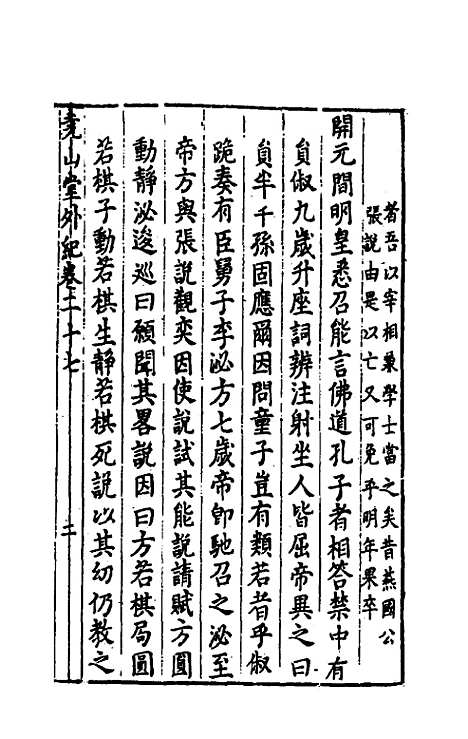 者吾以宰相兼學士當之矣昔燕國公
張說由是以亡又可免乎明年果卒
開元間明皇悉召能言佛道孔子者相答禁中有
員俶九歲升座詞辨注射坐人皆屈帝異之曰
員半千孫固應爾因問童子豈有類若者乎俶
跪奏有臣舅子李泌方七歲帝卽馳召之泌至
帝方與張說觀奕因使說試其能說請賦方圓
動靜泌逡巡曰願聞其畧說因曰方若棋局圓
若棋子動若棋生靜若棋死說以其幼仍教之
堯山堂外紀卷二十七
二